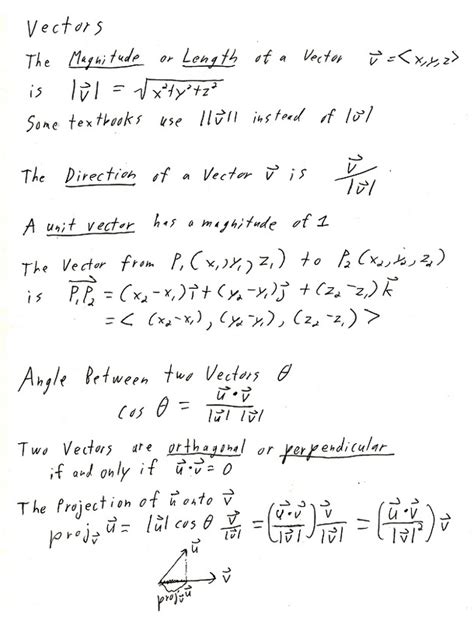 Vectors
The Magnitude or Length of a Vector v⃗ = <x,y,z>
is |v⃗| = √x²+y²+z²
Some textbooks use ||v⃗|| instead of |v⃗|
The Direction of a Vector v⃗ is v⃗/|v⃗|
A unit vector has a magnitude of 1
The Vector from P₁(x₁,y₁,z₁) to P₂(x₂,y₂,z₂)
is P₁P₂⃗ = (x₂-x₁)i⃗+(y₂-y₁)j⃗+(z₂-z₁)k⃗
= <(x₂-x₁),(y₂-y₁),(z₂-z₁)>
Angle Between two Vectors θ
cos θ = u⃗•v⃗/|u⃗| |v⃗|
Two Vectors are orthagonal or perpendicular
if and only if u⃗•v⃗ = 0
The Projection of u⃗ onto v⃗
proj_v⃗ u⃗ = |u⃗| cos θ v⃗/|v⃗| = (u⃗•v⃗/|v⃗|) v⃗/|v⃗| = (u⃗•v⃗/|v⃗|²) v⃗
u⃗
v⃗
proj_v⃗ u⃗